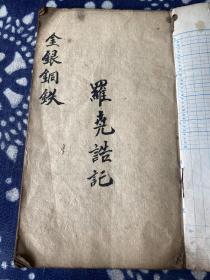 金銀銅鉄
羅堯誥記